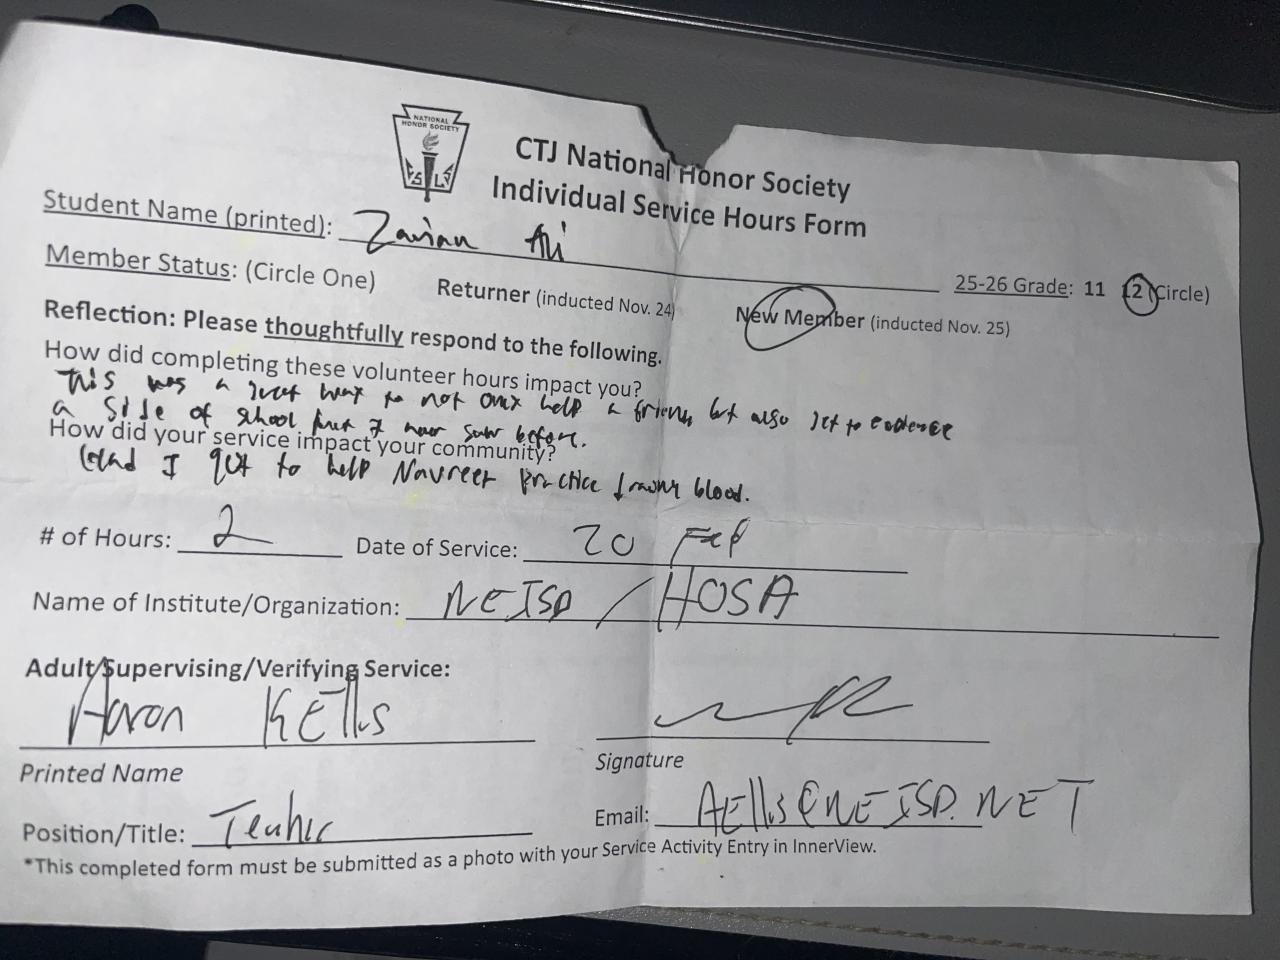 NATIONAL
HONOR SOCIETY
CTJ National Honor Society
Individual Service Hours Form
Student Name (printed): Zavian Ali
25-26 Grade: 11 12 (Circle)
Member Status: (Circle One) Returner (inducted Nov. 24) New Member (inducted Nov. 25)
Reflection: Please thoughtfully respond to the following.
How did completing these volunteer hours impact you?
This was a great way to not only help a friend, but also get to
a side of school that I never saw before.
How did your service impact your community?
Glad I got to help Navreet practice drawing blood.
# of Hours: 2 Date of Service: 20 Feb
Name of Institute/Organization: NEISD / HOSA
Adult/Supervising/Verifying Service:
Aaron
Printed Name Signature
Position/Title: Teacher Email: AEllis@NEISD.NET
*This completed form must be submitted as a photo with your Service Activity Entry in InnerView.